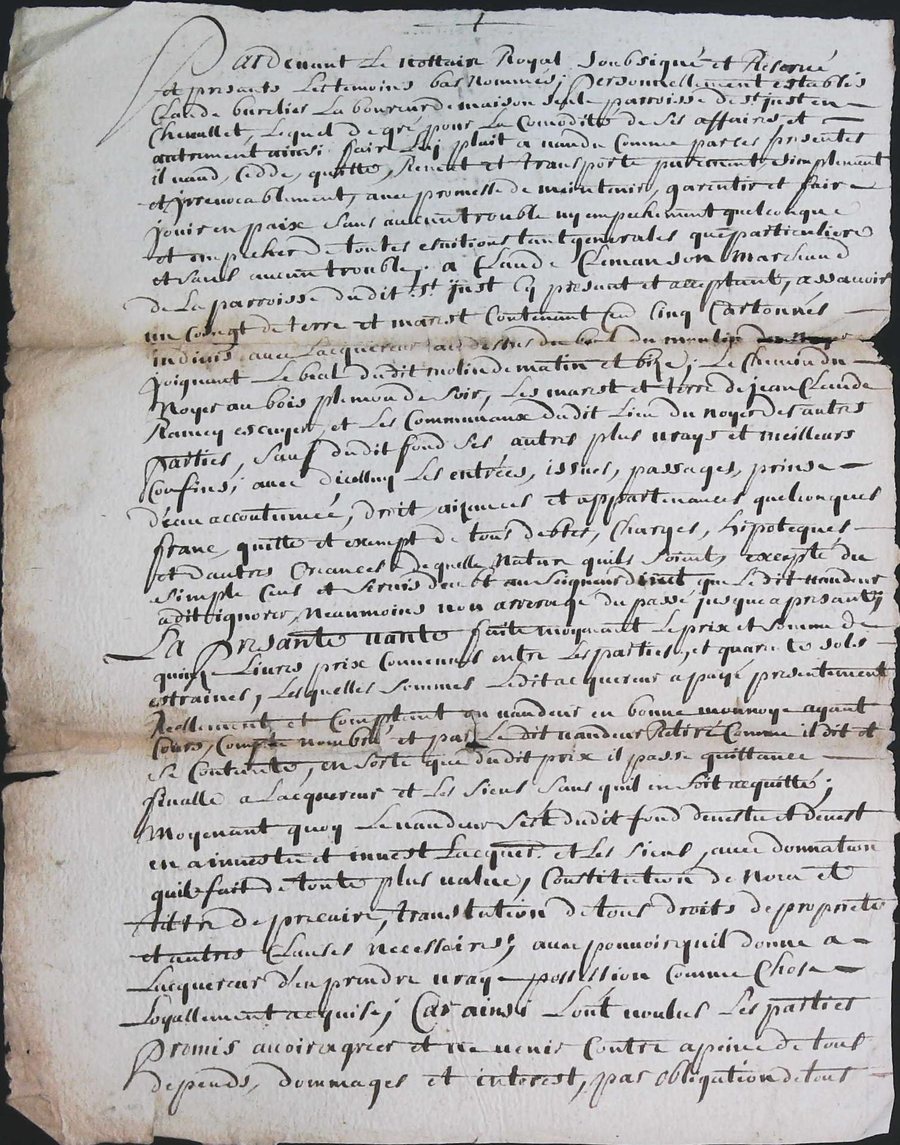 Pardevant Le nottaire Royal soubsigné et Reservé
et presents Les temoins bas nommés; Personnellement establis
Claude burelier Laboureur de maison seule parroisse de st just en
Chevallet, Lequel de gré pour La Comodité de ses affaires et
autrement ainsi faire Luy plait a vandu Comme par ces presentes
il vand, Cedde, quitte, Remet et transporte purement, simplement
et Irrevocablement, avec promesse de maintenir, garentir et faire
jouir en paix sans aucun trouble ny empechement quelconque
et empecher de toutes evictions tant generales que particuliere
et sans aucun trouble; a Claude Clemanson Marchand
de La parroisse dudit st just cy present et acceptant, assavoir
un Coingt de terre et marest Contenant Cinq Cartonnés
indivis avec Lacquereur au dessus du du moulin
joignant Le beal dudit molin de matin et bize; Le Chemin du
Noyer au bois plemon de soir, Les marest et terre de jean Claude
Ramey escuyer, et Les Communaux dudit Lieu du noyer des autres
parties, sauf dudit fond ses autres plus vrays et meilleurs
Confins; avec dicelluy Les entrées, issues, passages, prinse
d'eau accoutumée, droit, aizances et appartenances quelconques
franc, quitte et exempt de tous debtes, Charges, hipoteques
et dautres Creances de quelle Nature quils soient, excepté du
simple Cens et servis deub au seigneur direct que Ledit vandeur
a dit ignorer, Neanmoins non arreragé du passé jusque a presant;
La Presante vante faite moyenant Le prix et somme de
quinze Livres prix Convenus entre Les parties, et quarante sols
estraines, Lesquelles sommes Ledit acquereur a payé presentement
Reellement et Comptent au vandeur en bonne monnoye ayant
Cours, Comptée nombrée et par Le dit vandeur Retiré Comme il dit et
se Contente, en sorte que dudit prix il passe quittance
finalle a Lacquereur et Les siens sans quil en soit acquitté;
Moyenant quoy Le vandeur s'est dudit fond devestu et devest
en a investu et invest Lacquer. et Les siens, avec donnation
quil fait de toute plus value, Constitution de Nom et
tittre de precaire, translation de tous droits de proprieté
et autres Clauses necessaires; avec pouvoir quil donne a
Lacquereur d'en prendre vraye possession Comme Chose
Loyallement acquise; Car ainsi L'ont voulus Les parties
Promis avoir agreer et ne venir Contre a peine de tous
depends, dommages et interest, par obligation de tous